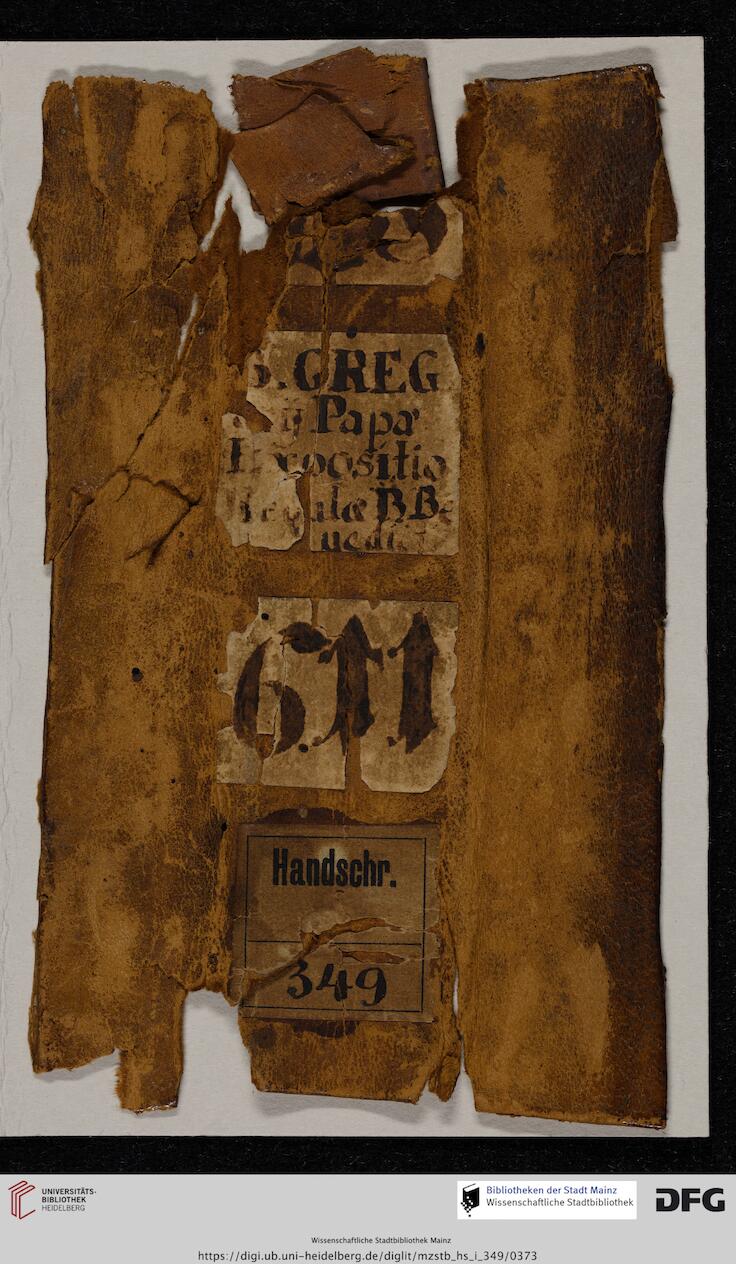 S. GREG
ij Papa
Expositio
Regulæ B. Be
nedic
611
Handschr.
349
UNIVERSITÄTS-
BIBLIOTHEK
HEIDELBERG
Bibliotheken der Stadt Mainz
Wissenschaftliche Stadtbibliothek
DFG
Wissenschaftliche Stadtbibliothek Mainz
https://digi.ub.uni-heidelberg.de/diglit/mzstb_hs_i_349/0373